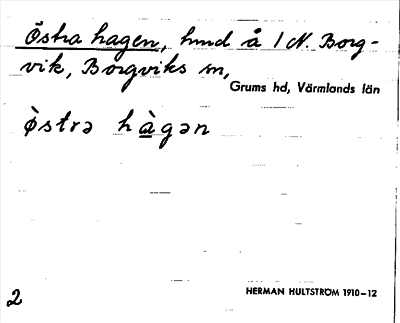 Östra hagen, hmd å 1 N. Borg-
vik, Borgviks sn,
Grums hd, Värmlands län
ö̀strə hàgən
HERMAN HULTSTRÖM 1910–12
2